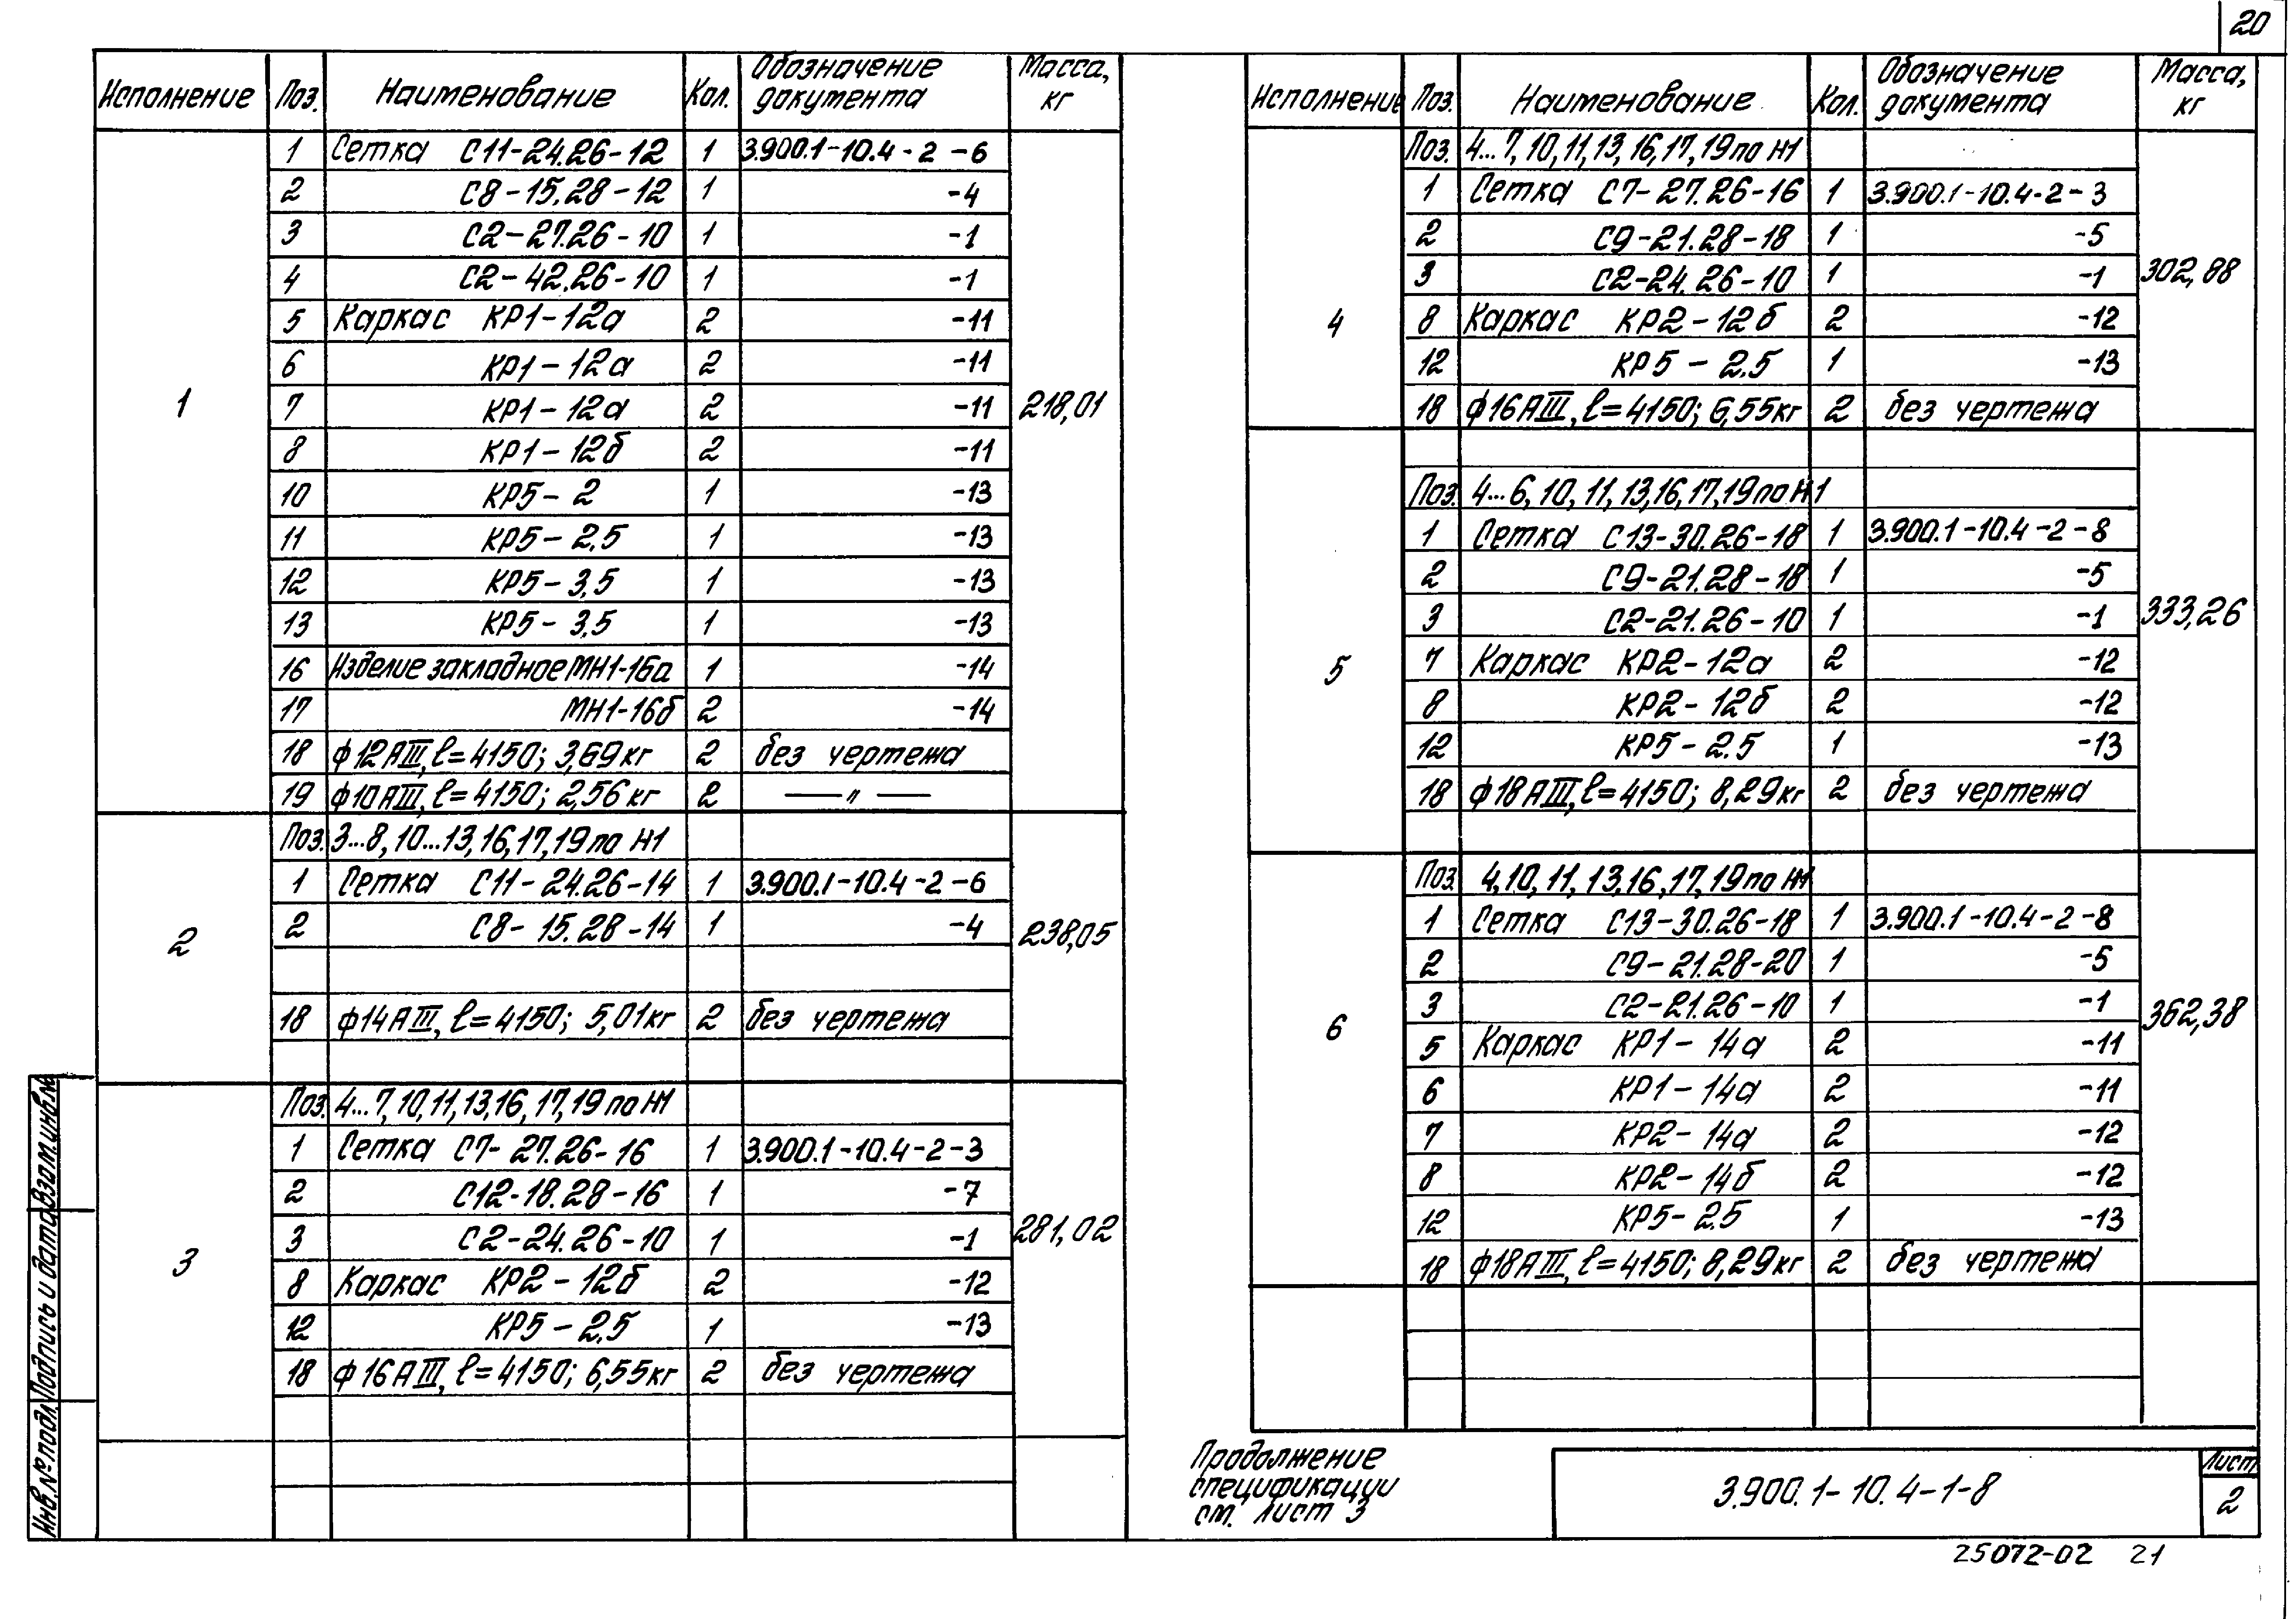 20
Исполнение Поз. Наименование Кол. Обозначение документа Масса, кг
1 218,01
1 Сетка С11-24.26-12 1 3.900.1-10.4-2-6
2 С8-15.28-12 1 -4
3 С2-27.26-10 1 -1
4 С2-42.26-10 1 -1
5 Каркас КР1-12а 2 -11
6 КР1-12а 2 -11
7 КР1-12а 2 -11
8 КР1-12б 2 -11
10 КР5-2 1 -13
11 КР5-2,5 1 -13
12 КР5-3,5 1 -13
13 КР5-3,5 1 -13
16 Изделие закладное МН1-16а 1 -14
17 МН1-16б 2 -14
18 ф12АIII, ℓ=4150; 3,69кг 2 без чертежа
19 ф10АIII, ℓ=4150; 2,56кг 2 —〃—
2 238,05
Поз. 3...8, 10...13, 16, 17, 19 по И1
1 Сетка С11-24.26-14 1 3.900.1-10.4-2-6
2 С8-15.28-14 1 -4
18 ф14АIII, ℓ=4150; 5,01кг 2 без чертежа
3 281,02
Поз. 4...7, 10, 11, 13, 16, 17, 19 по И1
1 Сетка С7-27.26-16 1 3.900.1-10.4-2-3
2 С12-18.28-16 1 -7
3 С2-24.26-10 1 -1
8 Каркас КР2-12б 2 -12
12 КР5-2,5 1 -13
18 ф16АIII, ℓ=4150; 6,55кг 2 без чертежа
Исполнение Поз. Наименование Кол. Обозначение документа Масса, кг
4 302,88
Поз. 4...7, 10, 11, 13, 16, 17, 19 по И1
1 Сетка С7-27.26-16 1 3.900.1-10.4-2-3
2 С9-21.28-18 1 -5
3 С2-24.26-10 1 -1
8 Каркас КР2-12б 2 -12
12 КР5-2,5 1 -13
18 ф16АIII, ℓ=4150; 6,55кг 2 без чертежа
5 333,26
Поз. 4...6, 10, 11, 13, 16, 17, 19 по И1
1 Сетка С13-30.26-18 1 3.900.1-10.4-2-8
2 С9-21.28-18 1 -5
3 С2-21.26-10 1 -1
7 Каркас КР2-12а 2 -12
8 КР2-12б 2 -12
12 КР5-2.5 1 -13
18 ф18АIII, ℓ=4150; 8,29кг 2 без чертежа
6 362,38
Поз. 4, 10, 11, 13, 16, 17, 19 по И1
1 Сетка С13-30.26-18 1 3.900.1-10.4-2-8
2 С9-21.28-20 1 -5
3 С2-21.26-10 1 -1
5 Каркас КР1-14а 2 -11
6 КР1-14а 2 -11
7 КР2-14а 2 -12
8 КР2-14б 2 -12
12 КР5-2,5 1 -13
18 ф18АIII, ℓ=4150; 8,29кг 2 без чертежа
Продолжение
спецификации
см. Лист 3
3.900.1-10.4-1-8
Лист
2
25072-02 21
Инв.№подл. Подпись и дата Взам.инв.№